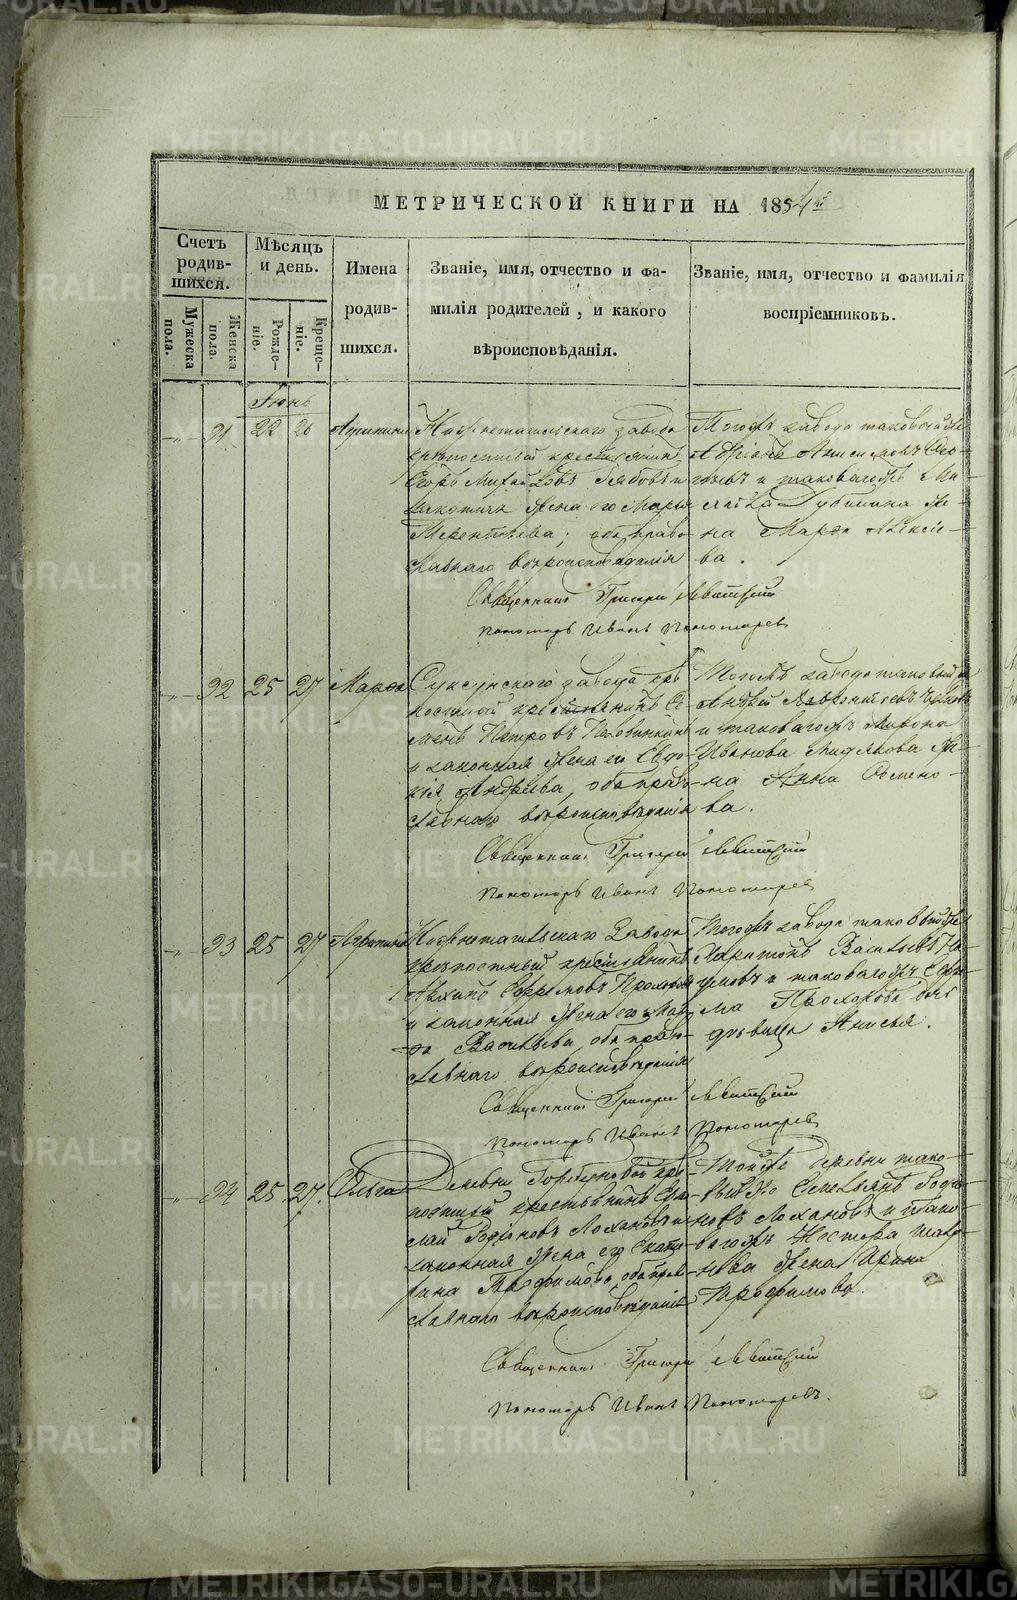 METRIKI.GASO-URAL.RU
МЕТРИЧЕСКОЙ КНИГИ НА 1854й
Счетъ родив-шихся.
Мужеска пола.
Женска пола.
Мѣсяцъ и день.
Рожде-ніе.
Креще-ніе.
Имена
родив-
шихся.
Званіе, имя, отчество и фа-
милія родителей, и какого
вѣроисповѣданія.
Званіе, имя, отчество и фамилія
воспріемниковъ.
Іюнь
91 22 26 Агрипина
Нижнетагильскаго завода
крѣпостный крестьянинъ
Егоръ Михайловъ
законная жена его Марья
Терентьева; оба право-
славнаго вѣроисповѣданія
Тогожъ завода таковый же
Анисимовъ
и таковагожъ
Губина же-
на Марья Алексѣе-
ва.
Священникъ Григорій Левитскій
Пономарь Иванъ Пономаревъ
92 25 27 Марѳа
Суксунскаго завода крѣ-
постный крестьянинъ Се-
менъ Петровъ
и законная жена его Евдо-
кія Андрѣева, оба право-
славнаго вѣроисповѣданія
Тогожъ завода таковый же
Андрей
и таковагожъ Мирона
Иванова же-
на Анна Семено-
ва.
Священникъ Григорій Левитскій
Пономарь Иванъ Пономаревъ
93 25 27 Агрипина
Нижнетагильскаго Завода
крѣпостный крестьянинъ
Архипъ Ефремовъ
и законная жена его
Васильева, оба право-
славнаго вѣроисповѣданія
Тогожъ завода таковый же
Харитонъ Васильевъ
и таковагожъ Ефри-
ма Прохорова дочь
дѣвица Анисья.
Священникъ Григорій Левитскій
Пономарь Иванъ Пономаревъ
94 25 27. Ольга
Деревни Горбуновой крѣ-
постный крестьянинъ
Родіоновъ Лохановъ и
законная жена его Екате-
рина Трофимова, оба право-
славнаго вѣроисповѣданія
Тойже Деревни тако-
вый же Емельянъ Родіо-
новъ Лохановъ и тако-
вагожъ Нестора
жена Ирина
Трофимова.
Священникъ Григорій Левитскій
Пономарь Иванъ Пономаревъ.